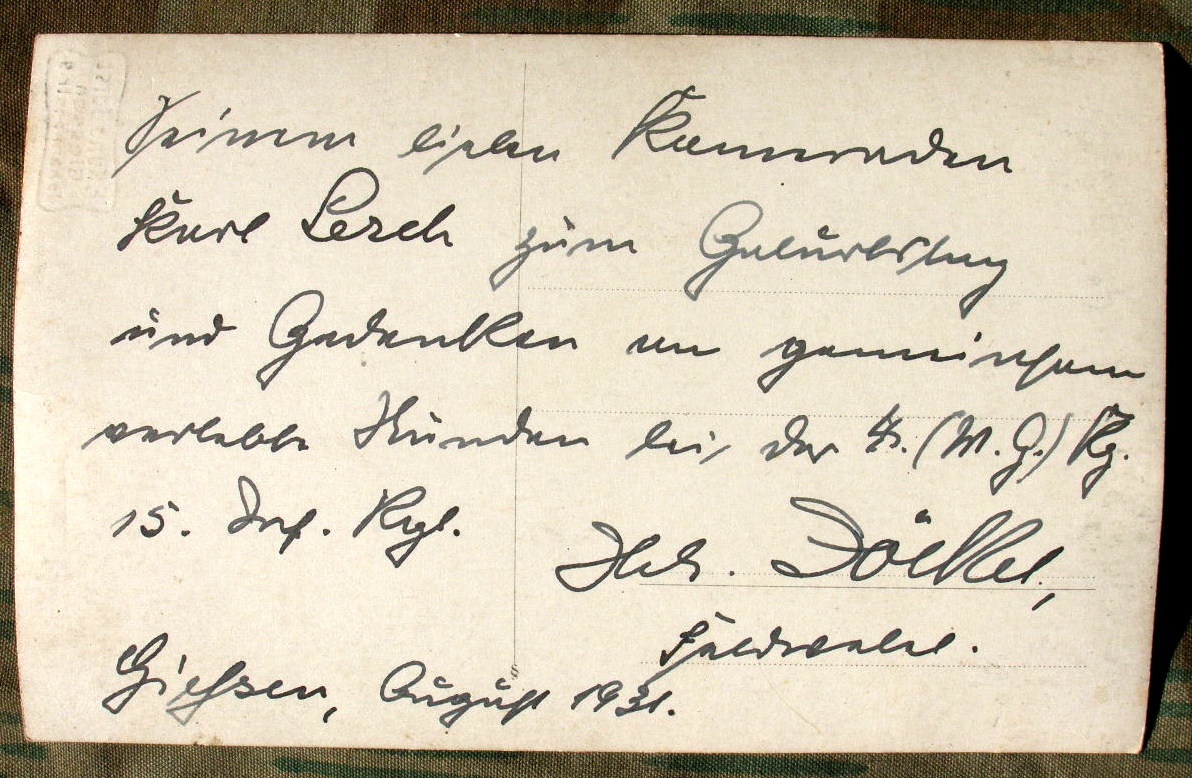 Seinem lieben Kameraden
Karl Lerch zum Geburtstag
und Gedenken an gemeinsam
verlebte Stunden bei der 4. (M.G.) Kp.
15. Inf. Regt.
Feldwebel.
Giessen, August 1931.